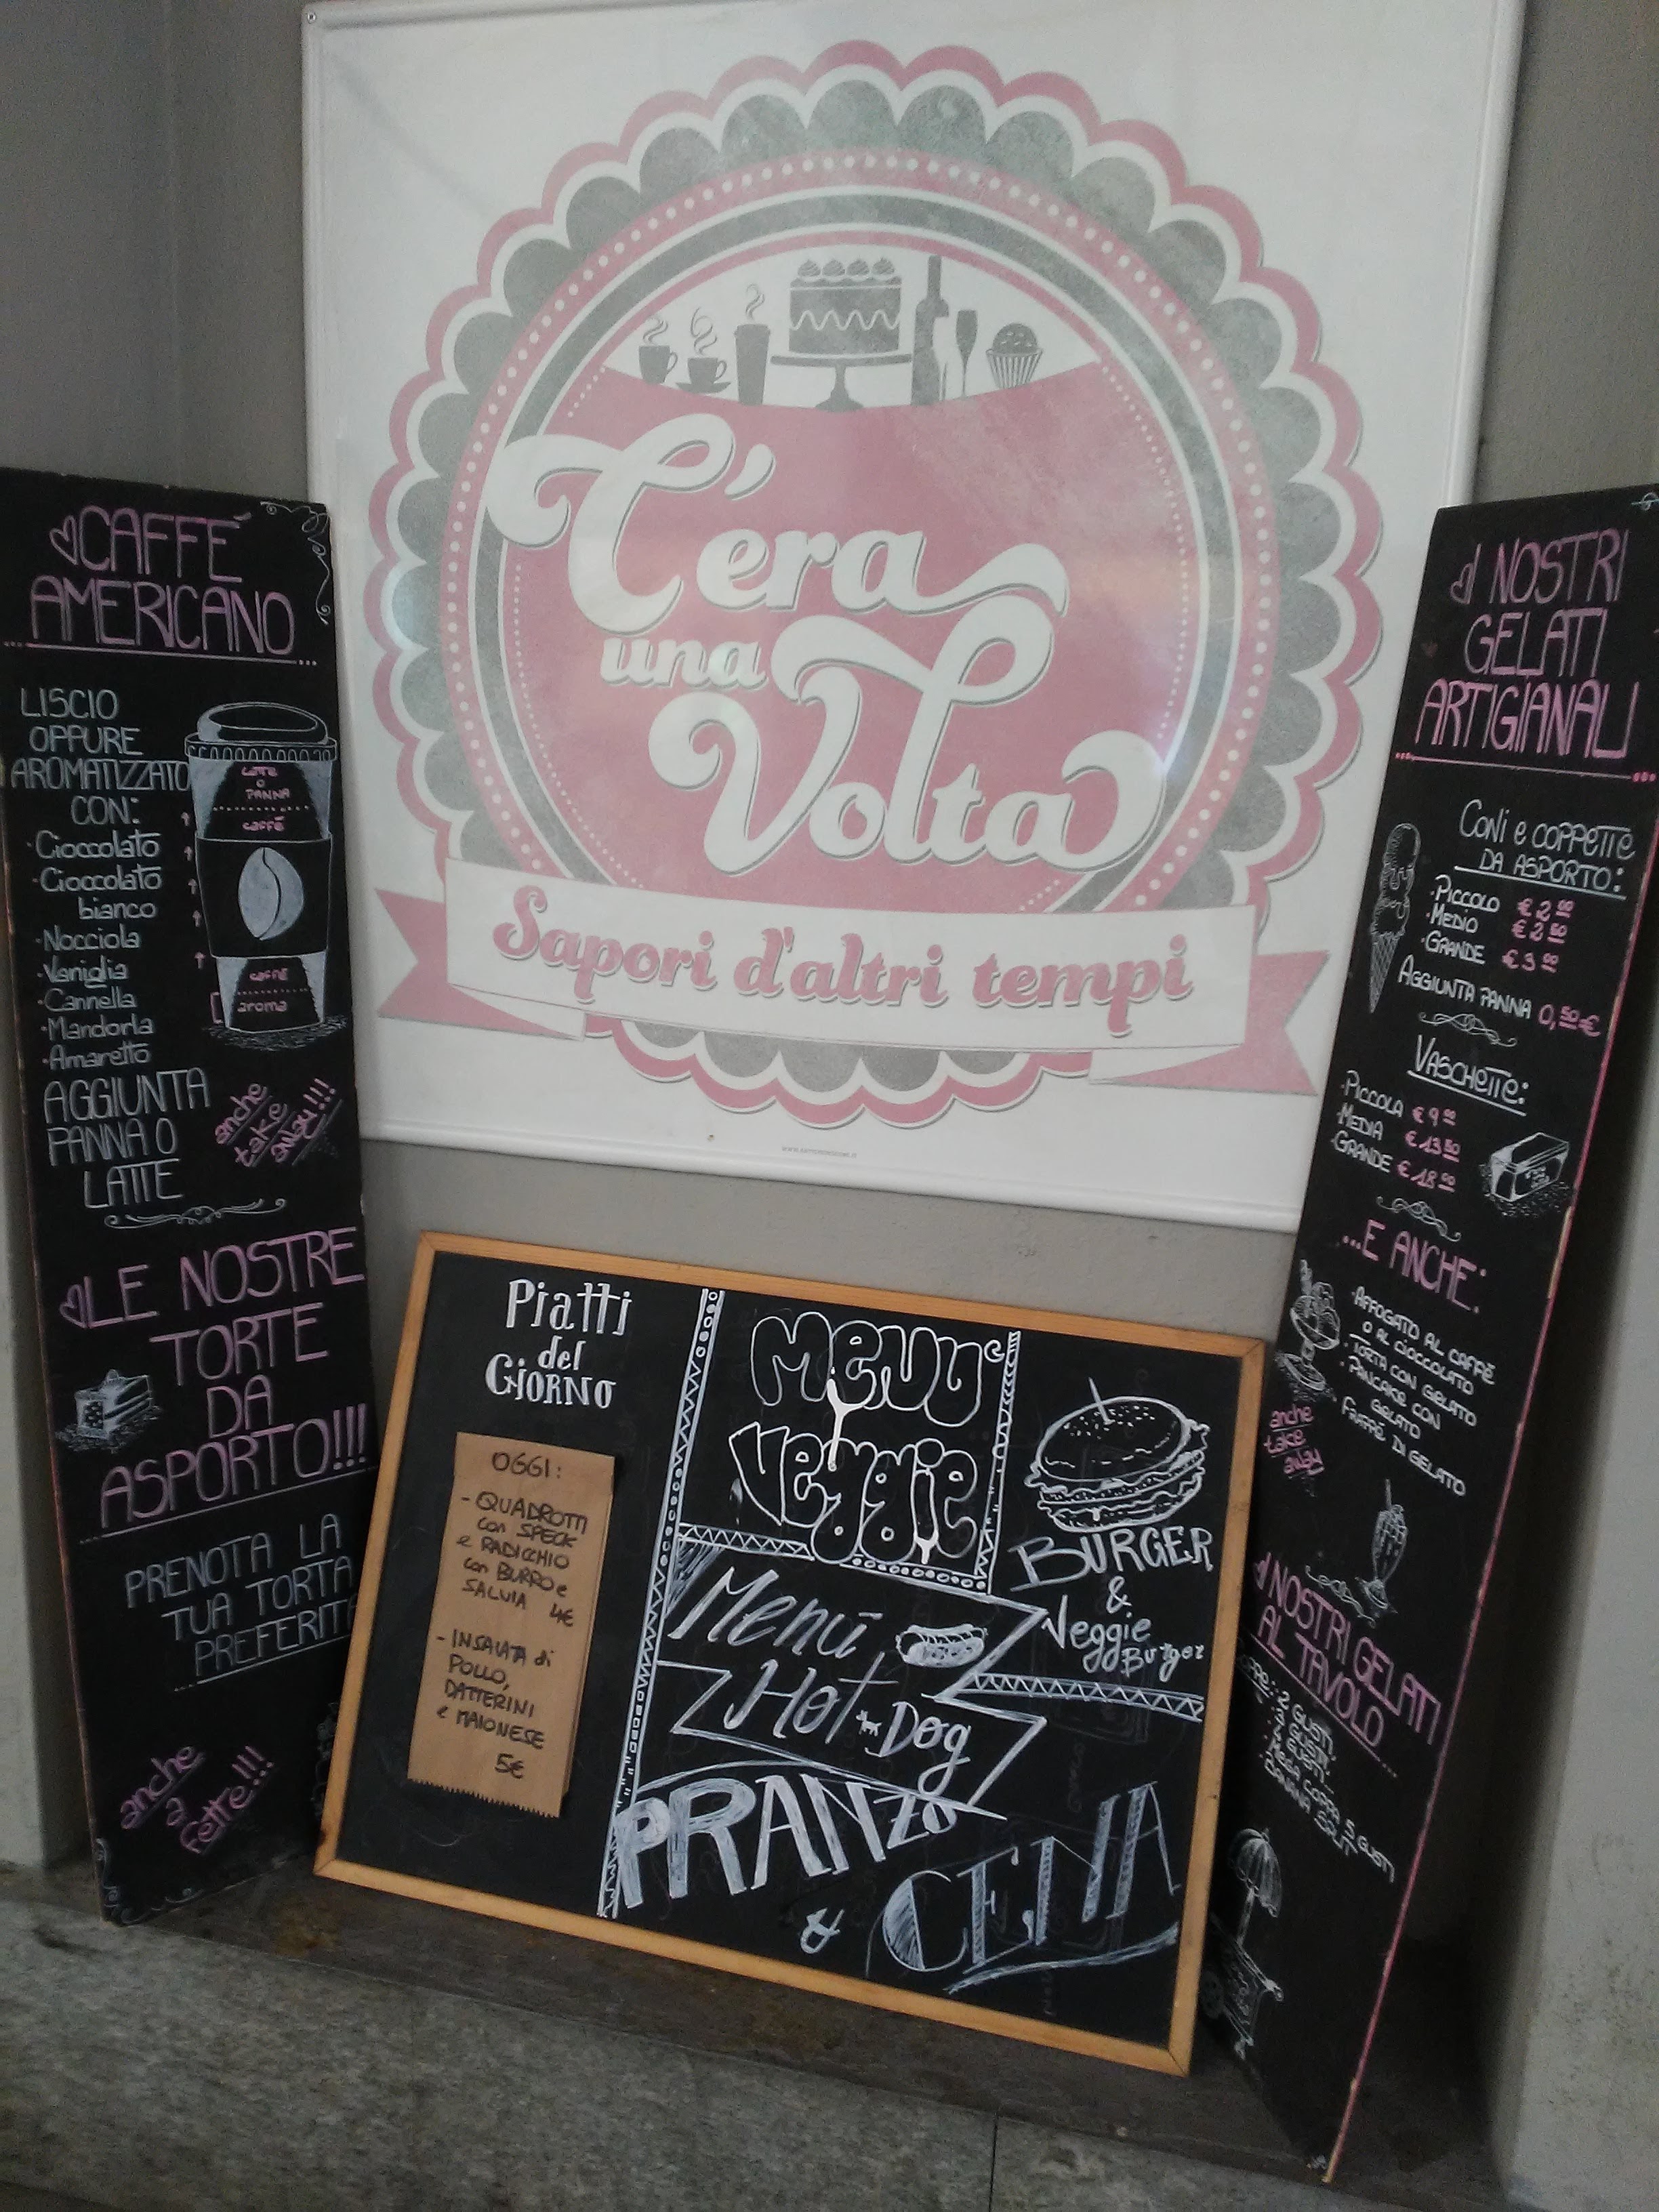 C'era
una
Volta
Sapori d'altri tempi
CAFFÈ
AMERICANO
LISCIO
OPPURE
AROMATIZZATO
CON:
·Cioccolato
·Cioccolato
bianco
·Nocciola
·Vaniglia
·Cannella
·Mandorla
·Amaretto
AGGIUNTA
PANNA O
LATTE
LATTE
O
PANNA
caffè
CAFFÈ
aroma
anche
take
away!!!
LE NOSTRE
TORTE
DA
ASPORTO!!!
PRENOTA LA
TUA TORTA
PREFERITA
anche
a
fette!!!
Piatti
del
GIORNO
OGGI:
- QUADROTTI
con SPECK
e RADICCHIO
con BURRO e
SALVIA 4€
- INSALATA di
POLLO,
DATTERINI
e MAIONESE
5€
Menu
Veggie
BURGER
&
Veggie
Burger
Menù
Hot Dog
PRANZO
&
CENA
I NOSTRI
GELATI
ARTIGIANALI
Coni e coppette
DA ASPORTO:
·PICCOLO €2,00
·MEDIO €2,50
·GRANDE €3,00
AGGIUNTA PANNA 0,50€
VASCHETTE:
·PICCOLA €9,00
·MEDIA €13,50
·GRANDE €18,00
...E ANCHE:
·AFFOGATO AL CAFFÈ
O AL CIOCCOLATO
·TORTA CON GELATO
·PANCAKE CON
GELATO
·FRAPPÈ DI GELATO
anche
take
away
I NOSTRI GELATI
AL TAVOLO...
2 GUSTI
3 GUSTI
MEGA COPPA 5 GUSTI
BANANA SPLIT